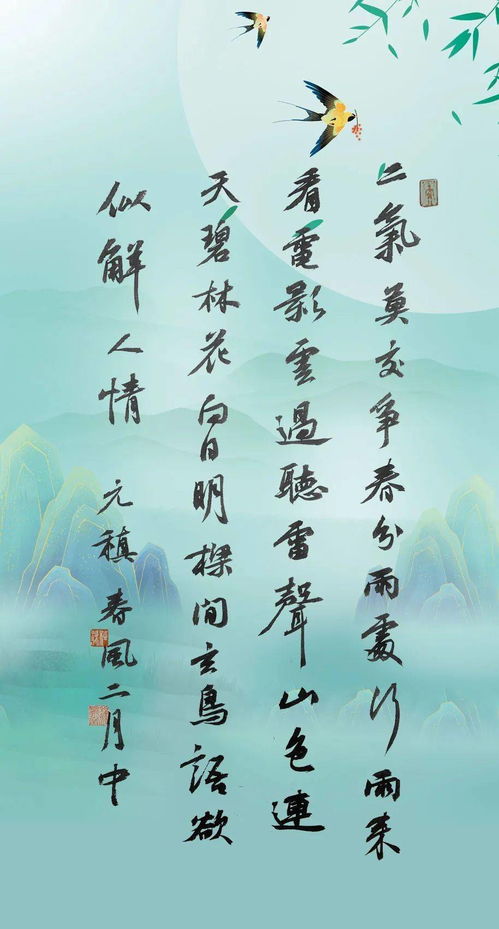 二氣莫交爭春分雨處行雨來
看電影雲過聽雷聲山色連
天碧林花向日明樑間玄鳥語欲
似解人情 元稹春風二月中